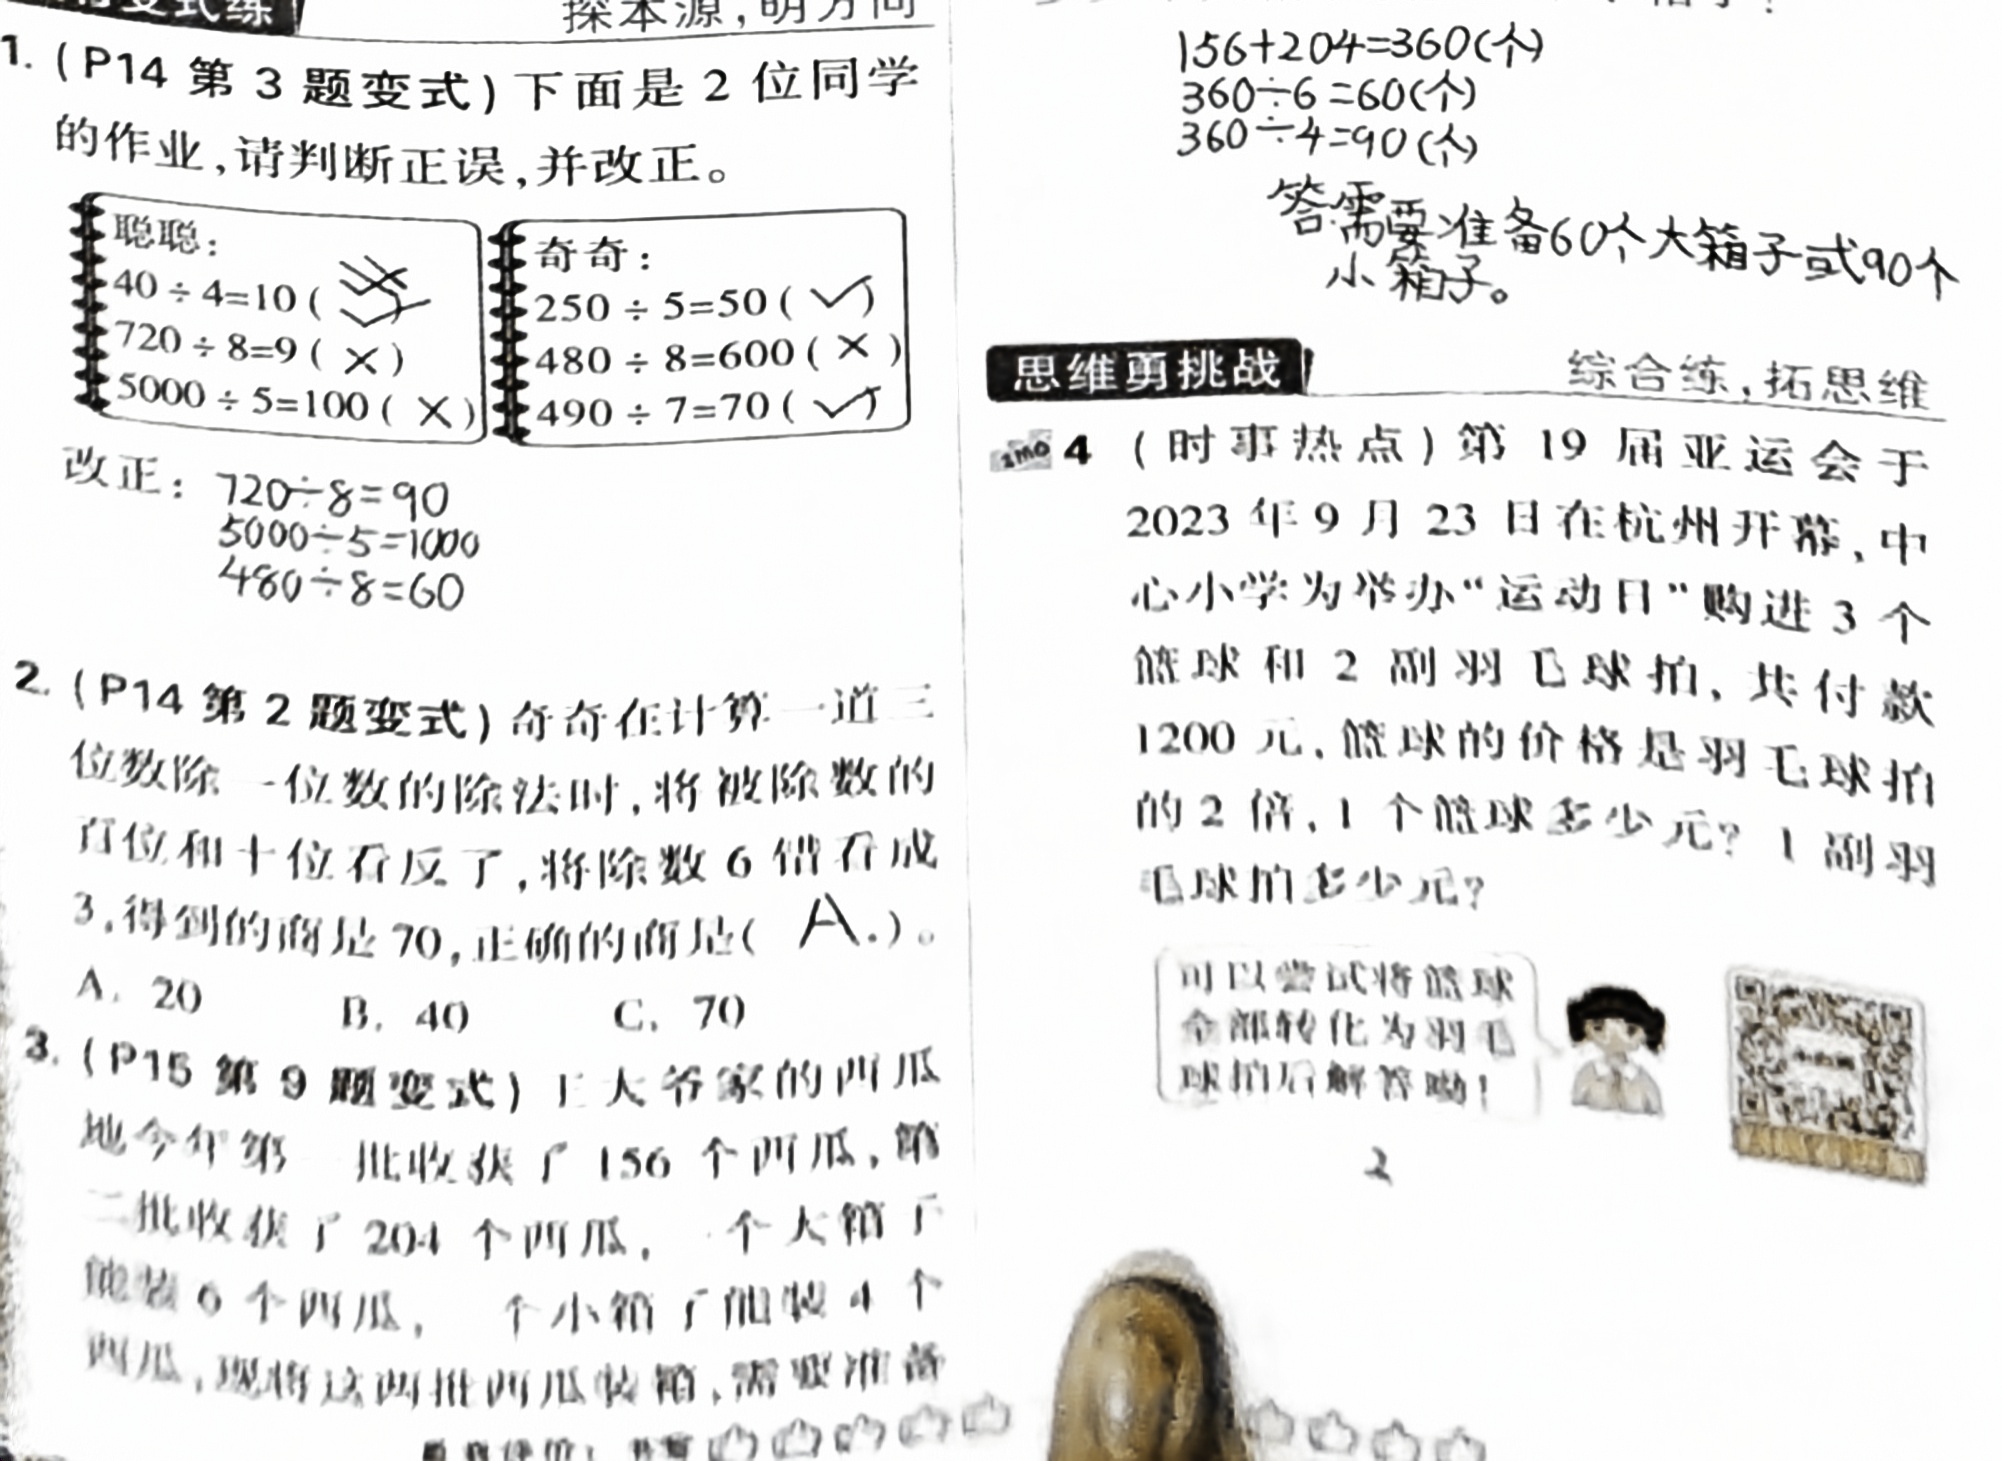 变式练
探本源,明方向
1. (P14 第 3 题变式)下面是 2 位同学
的作业,请判断正误,并改正。
聪聪:
40÷4=10( )
720÷8=9(×)
5000÷5=100(×)
奇奇:
250÷5=50(✓)
480÷8=600(×)
490÷7=70(✓)
改正: 720÷8=90
5000÷5=1000
480÷8=60
2. (P14 第 2 题变式)奇奇在计算一道三
位数除一位数的除法时,将被除数的
百位和十位看反了,将除数 6 错看成
3,得到的商是 70,正确的商是( A. )。
A. 20 B. 40 C. 70
3. (P15 第 9 题变式)王大爷家的西瓜
地今年第一批收获了 156 个西瓜,第
二批收获了 204 个西瓜,一个大箱子
能装 6 个西瓜,一个小箱子能装 4 个
西瓜,现将这两批西瓜装箱,需要准备
156+204=360(个)
360÷6=60(个)
360÷4=90(个)
答:需要准备60个大箱子或90个
小箱子。
思维勇挑战
综合练,拓思维
4 (时事热点)第 19 届亚运会于
2023 年 9 月 23 日在杭州开幕,中
心小学为举办“运动日”购进 3 个
篮球和 2 副羽毛球拍,共付款
1200 元,篮球的价格是羽毛球拍
的 2 倍,1 个篮球多少元?1 副羽
毛球拍多少元?
可以尝试将篮球
全部转化为羽毛
球拍后解答呦!
2